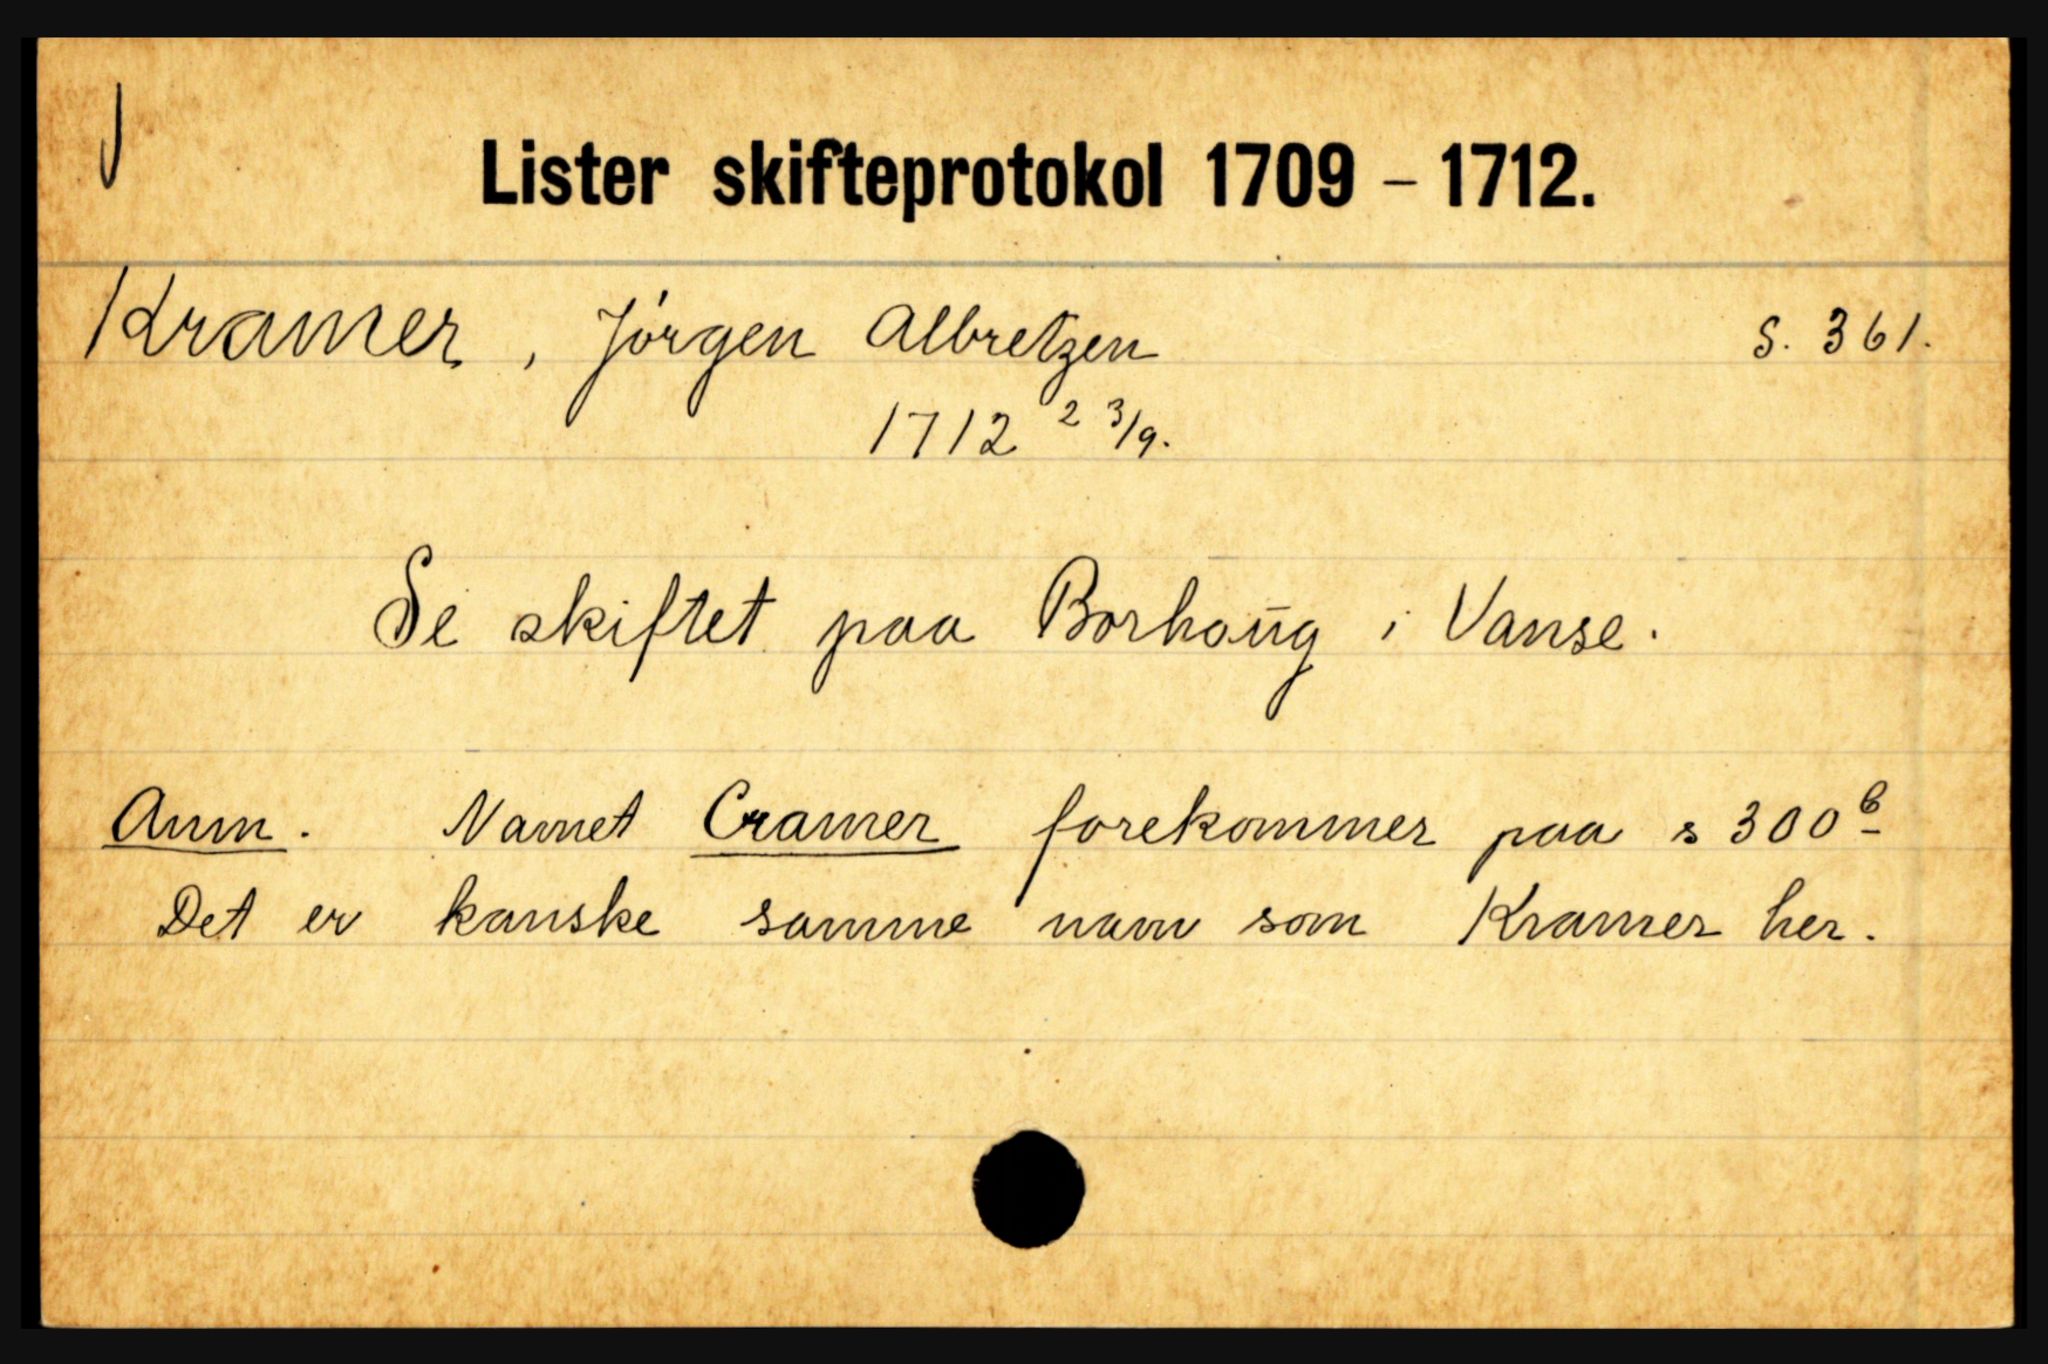 Lister skifteprotokol 1709 – 1712.
Kramer, Jörgen Albretzen S. 361.
1712 23/9.
Se skiftet paa Borhoūg i Vanse.
Anm. Navnet Cramer forekommer paa s 300 b
Det er kanske samme navn som Kramer her.